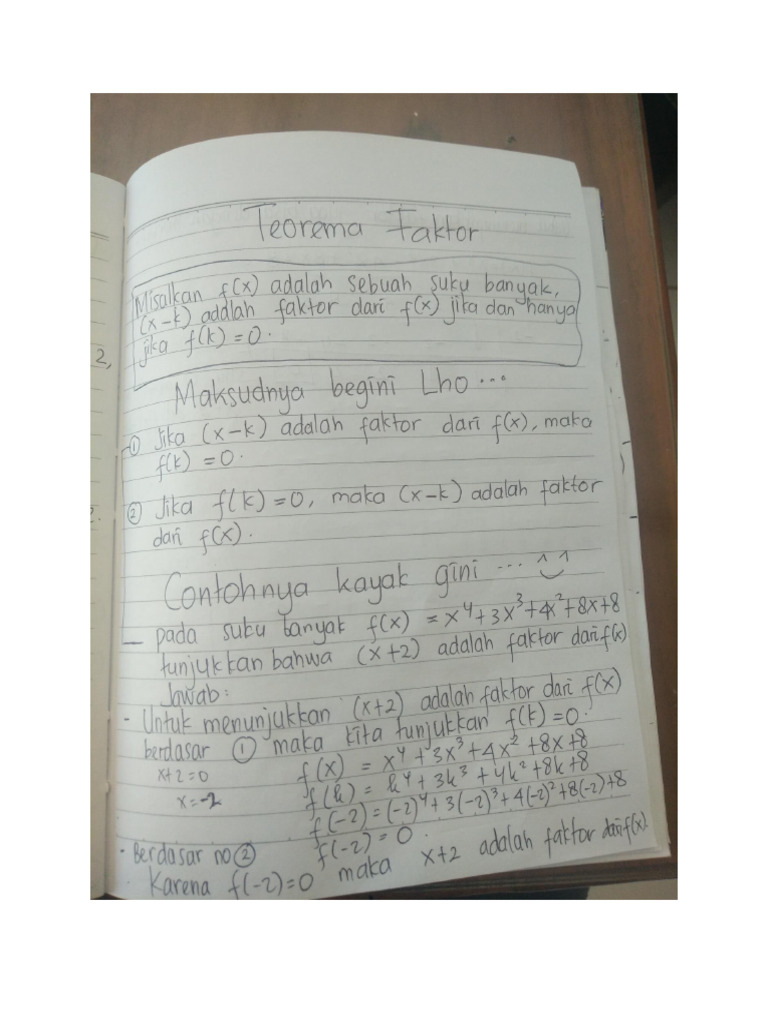 Teorema Faktor
Misalkan f(x) adalah sebuah suku banyak,
(x-k) adalah faktor dari f(x) jika dan hanya
jika f(k) = 0.
Maksudnya begini Lho ...
① Jika (x-k) adalah faktor dari f(x), maka
f(k) = 0.
② Jika f(k) = 0, maka (x-k) adalah faktor
dari f(x).
Contohnya kayak gini ... ^‿^
— pada suku banyak f(x) = x⁴+3x³+4x²+8x+8
tunjukkan bahwa (x+2) adalah faktor dari f(x)
Jawab:
- Untuk menunjukkan (x+2) adalah faktor dari f(x)
berdasar ① maka kita tunjukkan f(k) = 0.
f(x) = x⁴+3x³+4x²+8x+8
x+2=0
f(k) = k⁴+3k³+4k²+8k+8
x=-2
f(-2) = (-2)⁴+3(-2)³+4(-2)²+8(-2)+8
f(-2) = 0.
- Berdasar no ②
Karena f(-2)=0 maka x+2 adalah faktor dari f(x).
2,
2.